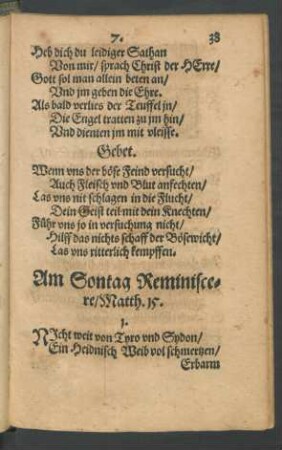 7. 38
Heb dich du leidiger Sathan
Von mir/ sprach Christ der HErre/
Gott sol man allein beten an/
Vnd jm geben die Ehre.
Als bald verlies der Teuffel jn/
Die Engel tratten zu jm hin/
Vnd dienten jm mit vleisse.
Gebet.
Wenn vns der böse Feind versucht/
Auch Fleisch vnd Blut anfechten/
Las vns nit schlagen in die Flucht/
Dein Geist teil mit dein Knechten/
Führ vns jo in versuchung nicht/
Hilff das nichts schaff der Bösewicht/
Las vns ritterlich kempffen.
Am Sontag Reminisce-
re/Matth. 15.
1.
NIcht weit von Tyro vnd Sydon/
Ein Heidnisch Weib vol schmertzen/
Erbarm